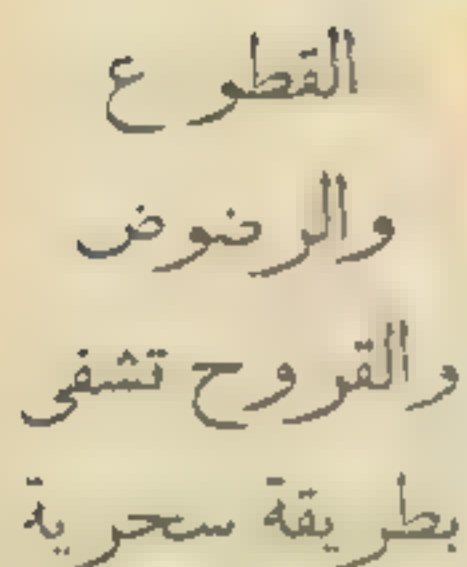 القطوع
والرضوض
والقروح تشفى
بطريقة سحرية